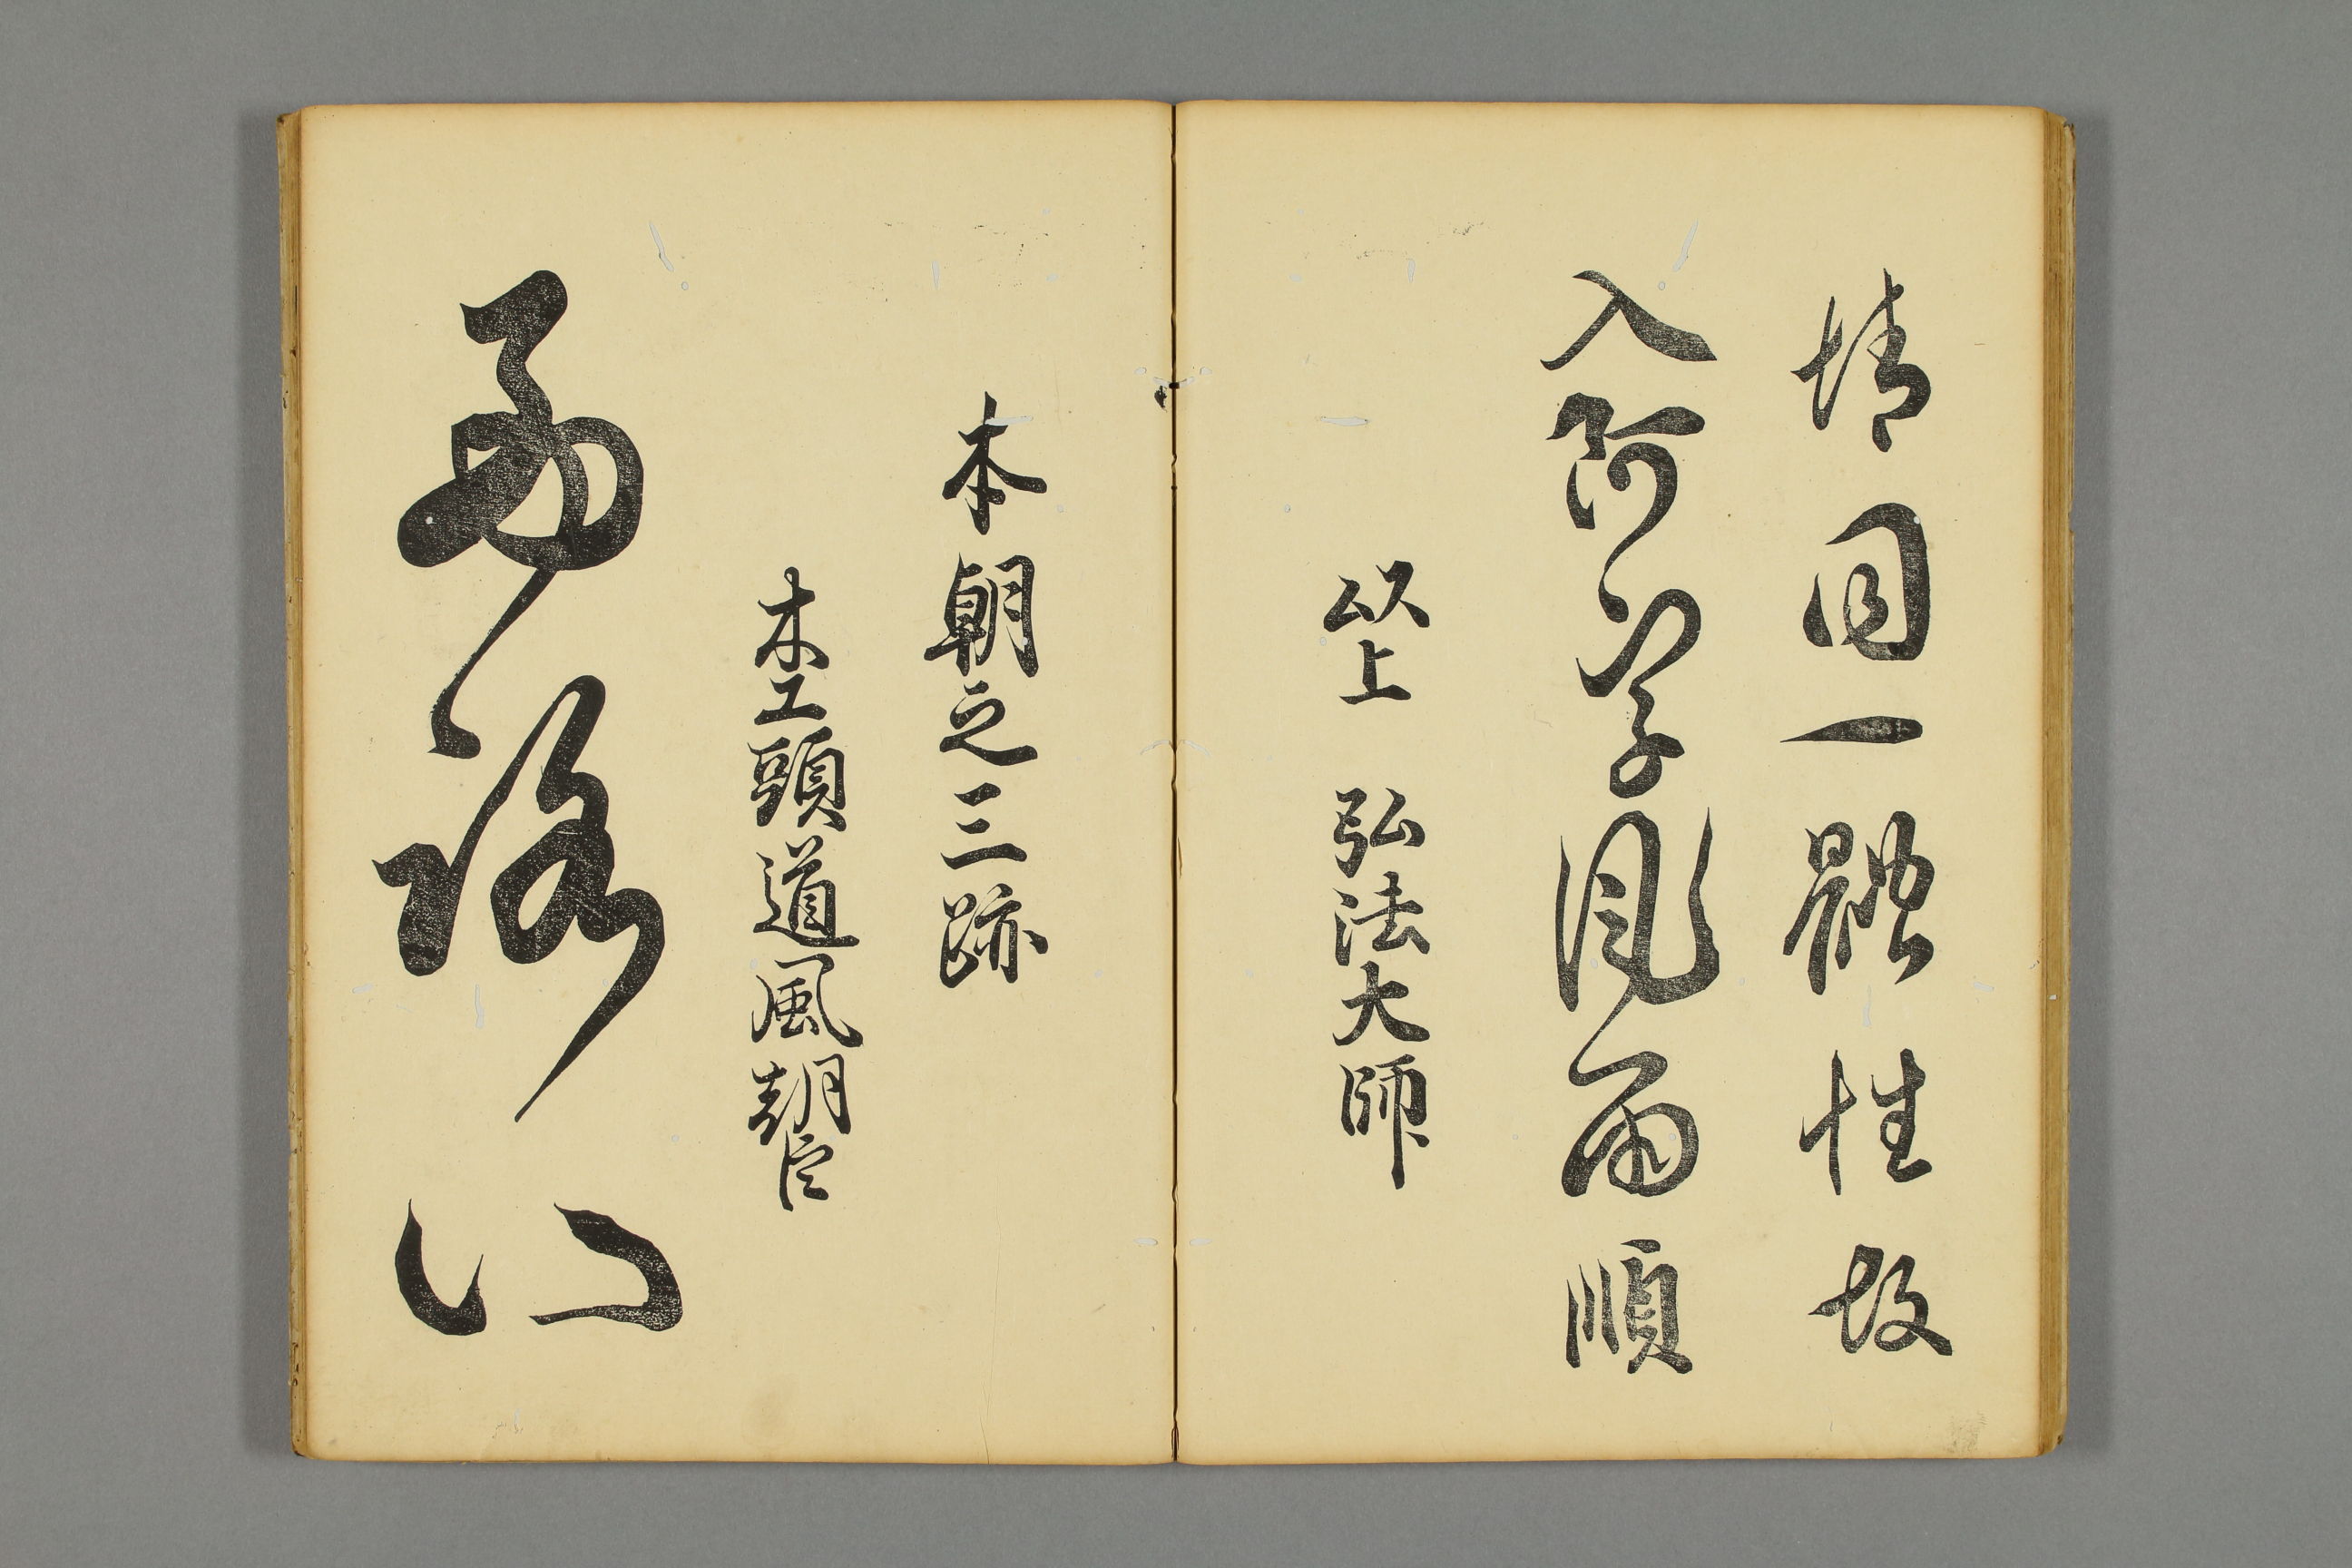 情同一體性故
入阿字風雨順
以上 弘法大師
本朝之三跡
木工頭道風朝臣